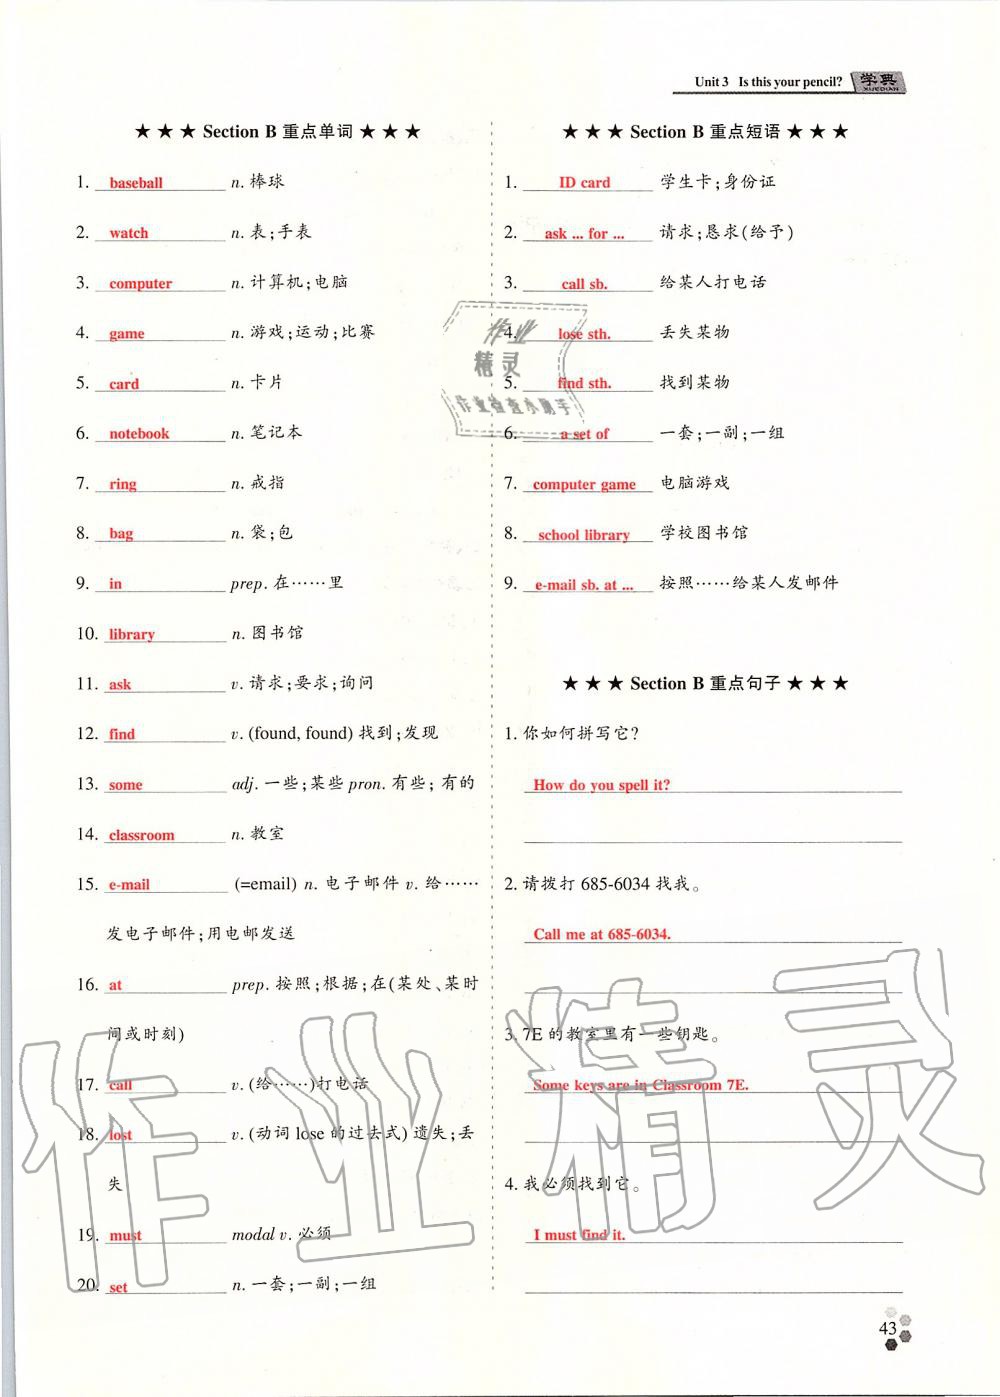 Unit 3 Is this your pencil? 学典
XUEDIAN
★ ★ ★ Section B 重点单词 ★ ★ ★
1. baseball n. 棒球
2. watch n. 表;手表
3. computer n. 计算机;电脑
4. game n. 游戏;运动;比赛
5. card n. 卡片
6. notebook n. 笔记本
7. ring n. 戒指
8. bag n. 袋;包
9. in prep. 在……里
10. library n. 图书馆
11. ask v. 请求;要求;询问
12. find v. (found, found) 找到;发现
13. some adj. 一些;某些 pron. 有些;有的
14. classroom n. 教室
15. e-mail (=email) n. 电子邮件 v. 给……
发电子邮件;用电邮发送
16. at prep. 按照;根据;在(某处、某时
间或时刻)
17. call v. (给……)打电话
18. lost v. (动词 lose 的过去式) 遗失;丢
失
19. must modal v. 必须
20. set n. 一套;一副;一组
★ ★ ★ Section B 重点短语 ★ ★ ★
1. ID card 学生卡;身份证
2. ask ... for ... 请求;恳求(给予)
3. call sb. 给某人打电话
4. lose sth. 丢失某物
5. find sth. 找到某物
6. a set of 一套;一副;一组
7. computer game 电脑游戏
8. school library 学校图书馆
9. e-mail sb. at ... 按照……给某人发邮件
★ ★ ★ Section B 重点句子 ★ ★ ★
1. 你如何拼写它?
How do you spell it?
2. 请拨打 685-6034 找我。
Call me at 685-6034.
3. 7E 的教室里有一些钥匙。
Some keys are in Classroom 7E.
4. 我必须找到它。
I must find it.
43
作业
精灵
作业检查小助手
作业精灵